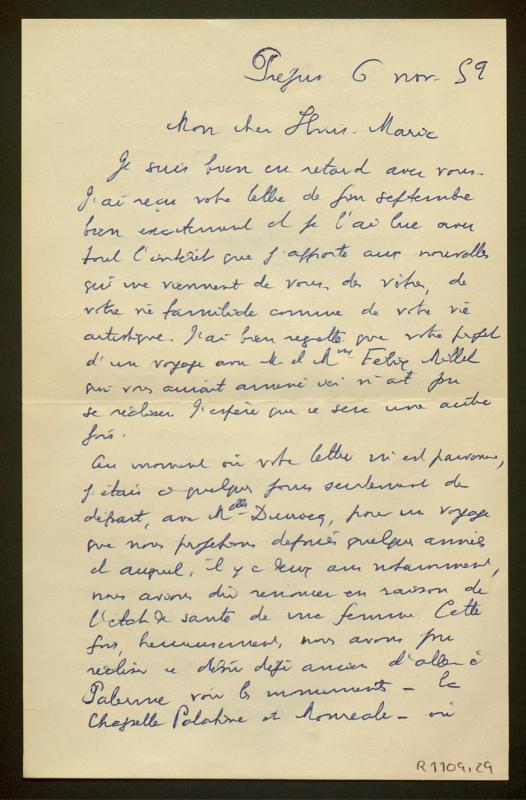 Fréjus 6 nov. 59
Mon cher Henri-Marie
Je suis bien en retard avec vous.
J'ai reçu votre lettre de fin septembre
bien exactement et je l'ai lue avec
tout l'intérêt que j'apporte aux nouvelles
qui me viennent de vous, des vôtres, de
votre vie familiale comme de votre vie
artistique. J'ai bien regretté que votre projet
d'un voyage avec M. et Mme Félix Millet
qui vous aurait amené ici n'ait pu
se réaliser. J'espère que ce sera une autre
fois.
Au moment où votre lettre m'est parvenue,
j'étais à quelques jours seulement de
départ, avec Melle, pour un voyage
que nous projetions depuis quelques années
et auquel, il y a deux ans notamment,
nous avions dû renoncer en raison de
l'état de santé de ma femme. Cette
fois, heureusement, nous avons pu
réaliser ce désir déjà ancien d'aller à
Palerme voir les monuments – la
Chapelle Palatine et Monreale – où
R 1109,29